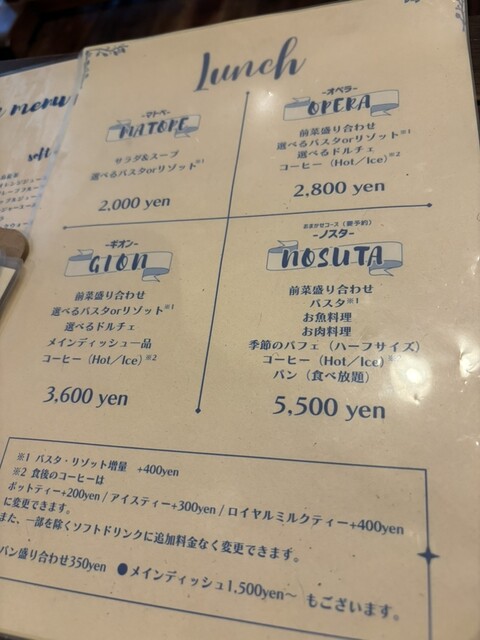 Lunch
-マトペ-
MATOPE
サラダ&スープ
選べるパスタorリゾット※1
2,000 yen
-オペラ-
OPERA
前菜盛り合わせ
選べるパスタorリゾット※1
選べるドルチェ
コーヒー（Hot／Ice）※2
2,800 yen
-ギオン-
GION
前菜盛り合わせ
選べるパスタorリゾット※1
選べるドルチェ
メインディッシュ一品
コーヒー（Hot／Ice）※2
3,600 yen
おまかせコース（要予約）
-ノスタ-
NOSUTA
前菜盛り合わせ
パスタ※1
お魚料理
お肉料理
季節のパフェ（ハーフサイズ）
コーヒー（Hot／Ice）※2
パン（食べ放題）
5,500 yen
※1 パスタ・リゾット増量 +400yen
※2 食後のコーヒーは
ポットティー+200yen / アイスティー+300yen / ロイヤルミルクティー+400yen
に変更できます。
また、一部を除くソフトドリンクに追加料金なく変更できます。
パン盛り合わせ350yen ●メインディッシュ1,500yen〜 もございます。
menu
soft